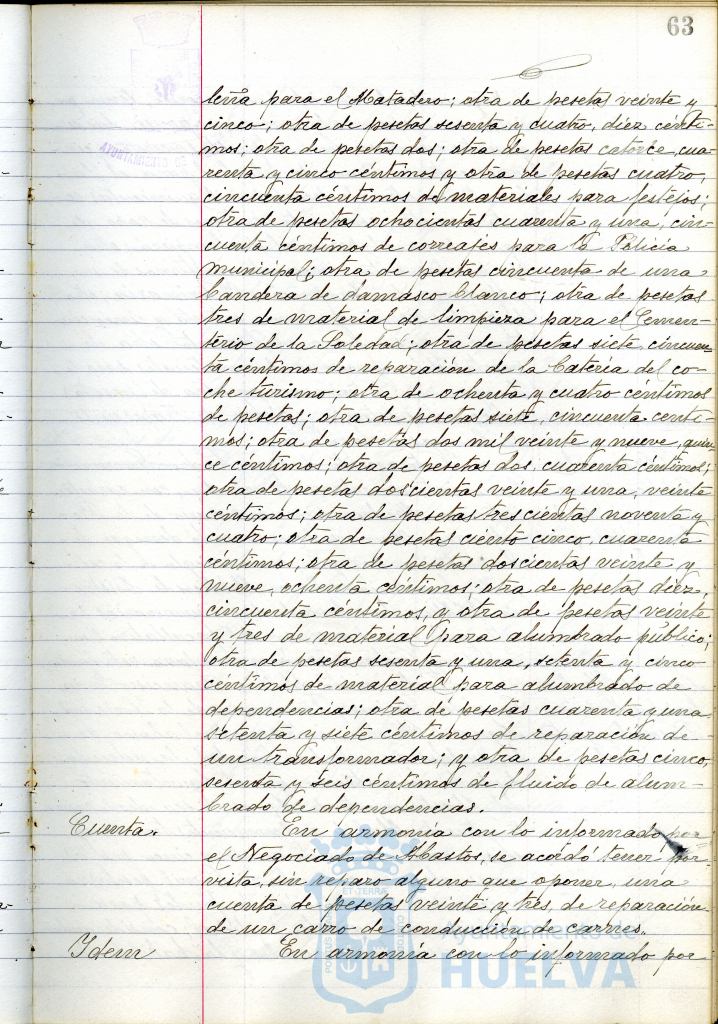 63
leña para el Matadero; otra de pesetas veinte y
cinco; otra de pesetas sesenta y cuatro, diez cénti-
mos; otra de pesetas dos; otra de pesetas catorce, cua-
renta y cinco céntimos y otra de pesetas cuatro,
cincuenta céntimos de materiales para festejos;
otra de pesetas ochocientas cuarenta y una, cin-
cuenta céntimos de correajes para la Policía
municipal; otra de pesetas cincuenta de una
bandera de damasco blanco; otra de pesetas
tres de material de limpieza para el Cemen-
terio de la Soledad; otra de pesetas siete, cincuen-
ta céntimos de reparación de la batería del co-
che turismo; otra de ochenta y cuatro céntimos
de pesetas; otra de pesetas siete, cincuenta cénti-
mos; otra de pesetas dos mil veinte y nueve, quin-
ce céntimos; otra de pesetas dos, cuarenta céntimos;
otra de pesetas doscientas veinte y una, veinte
céntimos; otra de pesetas trescientas noventa y
cuatro; otra de pesetas ciento cinco, cuarenta
céntimos; otra de pesetas doscientas veinte y
nueve, ochenta céntimos; otra de pesetas diez,
cincuenta céntimos, y otra de pesetas veinte
y tres de material para alumbrado público;
otra de pesetas sesenta y una, setenta y cinco
céntimos de material para alumbrado de
dependencias; otra de pesetas cuarenta y una
setenta y siete céntimos de reparación de
un transformador; y otra de pesetas cinco,
sesenta y seis céntimos de fluido de alum-
brado de dependencias.
Cuenta. En armonía con lo informado por
el Negociado de Abastos, se acordó tener por
vista, sin reparo alguno que oponer, una
cuenta de pesetas veinte y tres, de reparación
de un carro de conducción de carnes.
Idem En armonía con lo informado por
AYUNTAMIENTO DE
Ayuntamiento de
HUELVA